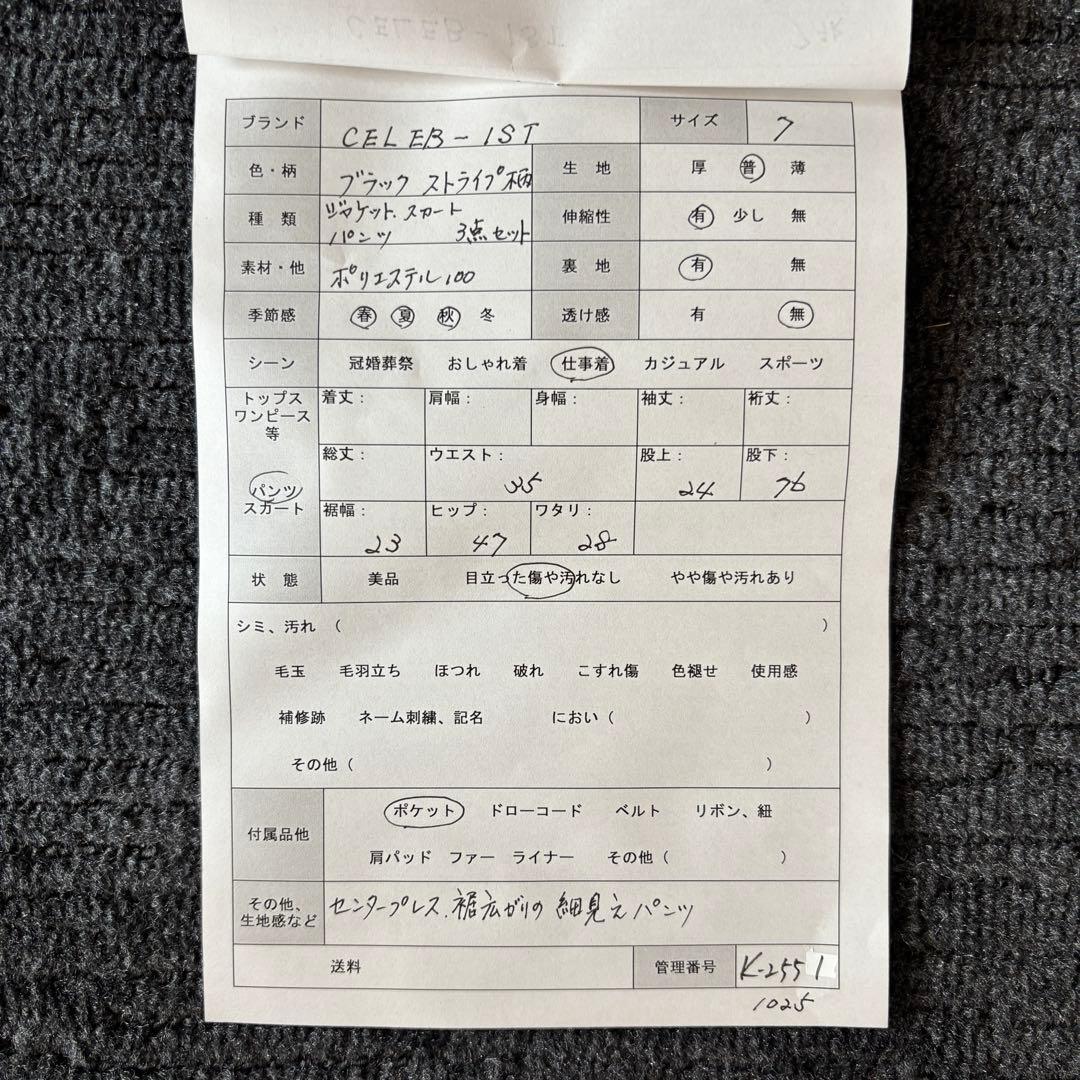 ブランド CELEB-1ST サイズ 7
色・柄 ブラック ストライプ柄 生 地 厚 普 薄
種 類 ジャケット、スカート パンツ 3点セット 伸縮性 有 少し 無
素材・他 ポリエステル100 裏 地 有 無
季節感 春 夏 秋 冬 透け感 有 無
シーン 冠婚葬祭 おしゃれ着 仕事着 カジュアル スポーツ
トップス ワンピース 等 着丈: 肩幅: 身幅: 袖丈: 裄丈:
パンツ スカート 総丈: ウエスト: 35 股上: 24 股下: 76
裾幅: 23 ヒップ: 47 ワタリ: 28
状 態 美品 目立った傷や汚れなし やや傷や汚れあり
シミ、汚れ ( )
毛玉 毛羽立ち ほつれ 破れ こすれ傷 色褪せ 使用感
補修跡 ネーム刺繍、記名 におい ( )
その他 ( )
付属品他 ポケット ドローコード ベルト リボン、紐
肩パッド ファー ライナー その他 ( )
その他、生地感など センタープレス、裾広がりの細見えパンツ
送料 管理番号 K-2551
1025